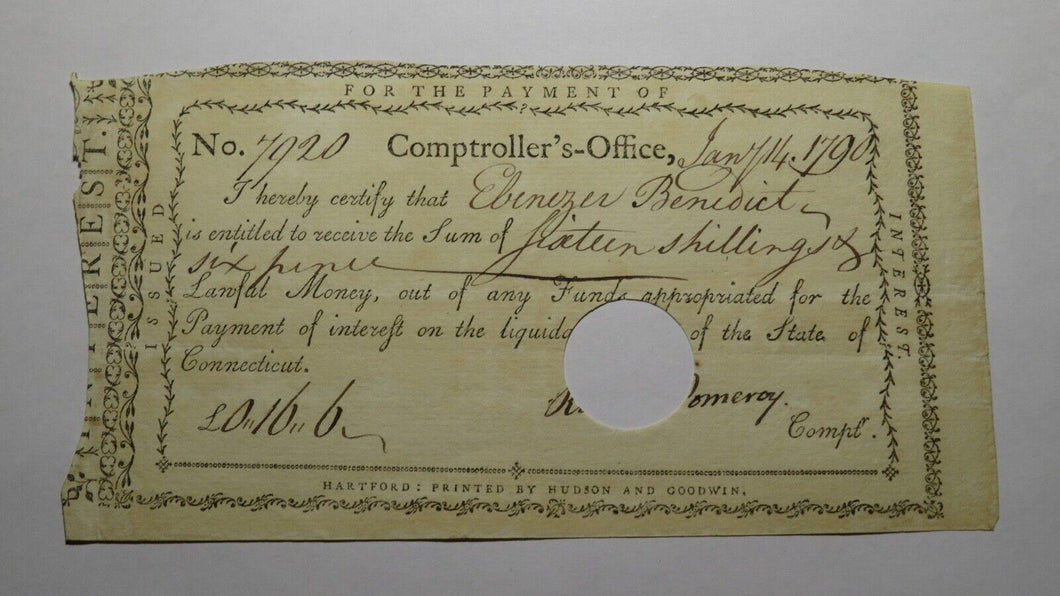 FOR THE PAYMENT OF
INTEREST.
ISSUED
No. 7920 Comptroller's-Office, Jany 14. 1790
I hereby certify that Ebenezer Benedict
is entitled to receive the Sum of Sixteen shillings &
six pence
Lawful Money, out of any Funds appropriated for the
Payment of interest on the liquida of the State of
Connecticut.
£0,,16,,6
omeroy.
Comptr.
INTEREST.
HARTFORD: PRINTED BY HUDSON AND GOODWIN.